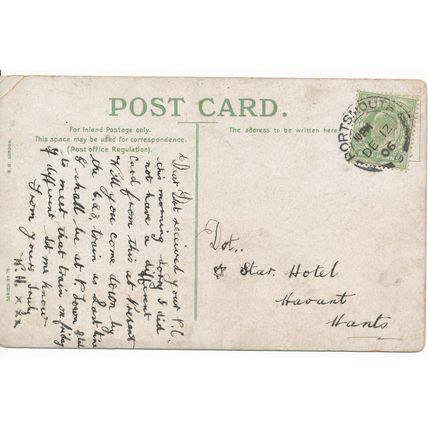 POST CARD.
For Inland Postage only.
This space may be used for correspondence.
(Post office Regulation).
The address to be written here
PORTSMOUTH
DE 12
06
Dear Dot received your P.C.
this morning sorry I did
not have a different
card from this at Present
Will you come down by
the 6.23 train as last time
I shall be at P. Town
to meet that train on friday
if different let me know
from yours truly
W. H. xxx
Dot.
Star Hotel
Havant
Hants